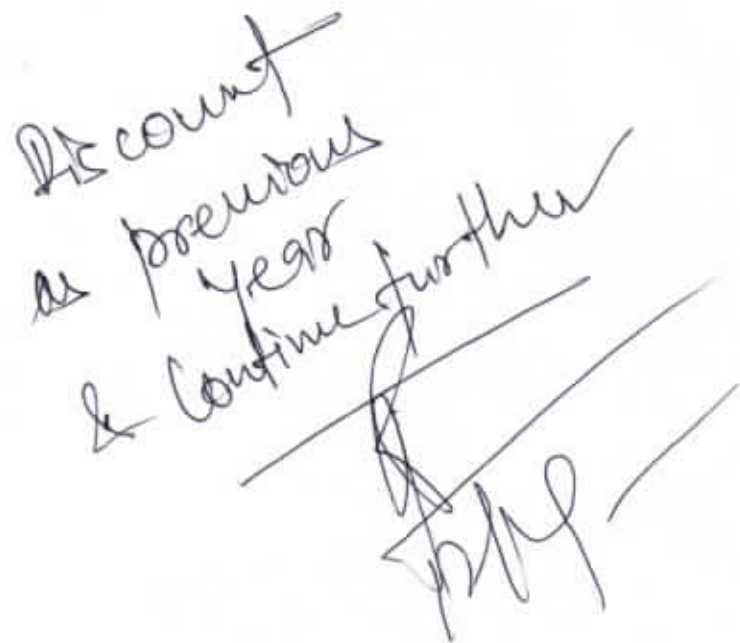 Discount
as previous
year
& continue further